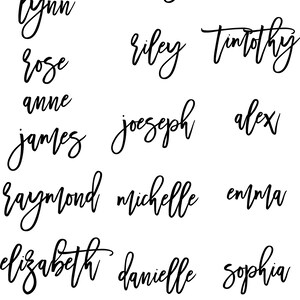 lynn
riley timothy
rose
anne
joeseph alex
james
raymond michelle emma
elizabeth danielle sophia